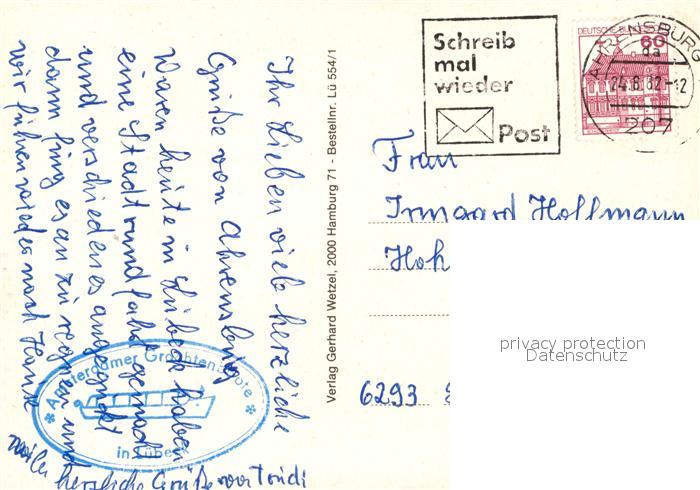 Ihr Lieben viele herzliche
Grüße von Ahrensburg
Waren heute in Lübeck haben
eine Stadtrundfahrt gemacht
und verschiedenes angeguckt
dann fing es an zu regnen und
wir fuhren wieder nach Hause
viele herzliche Grüße von Trudi
Amsterdamer Grachtenboote
in Lübeck
Verlag Gerhard Wetzel, 2000 Hamburg 71 - Bestellnr. Lü 554/1
Schreib
mal
wieder
Post
DEUTSCHE BUNDES
60
AHRENSBURG
24.8.82-12
207
Frau
Irmgard Hoffmann
Hoh
6293
privacy protection
Datenschutz